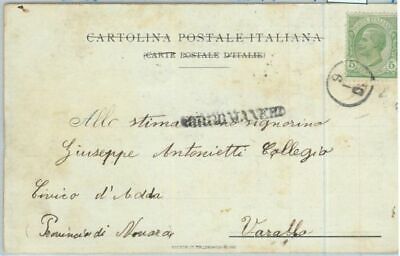 CARTOLINA POSTALE ITALIANA
(CARTE POSTALE D'ITALIE)
5 5
Allo stimatissimo signorino
Giuseppe Antonietti Collegio
Civico d'Adda
Provincia di Novara Varallo